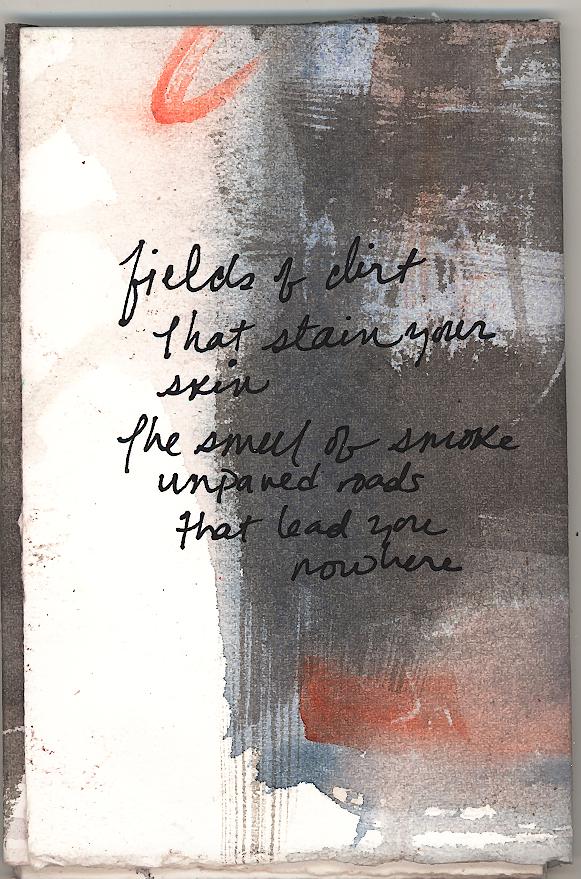 fields of dirt
that stain your
skin
The smell of smoke
unpaved roads
that lead you
nowhere